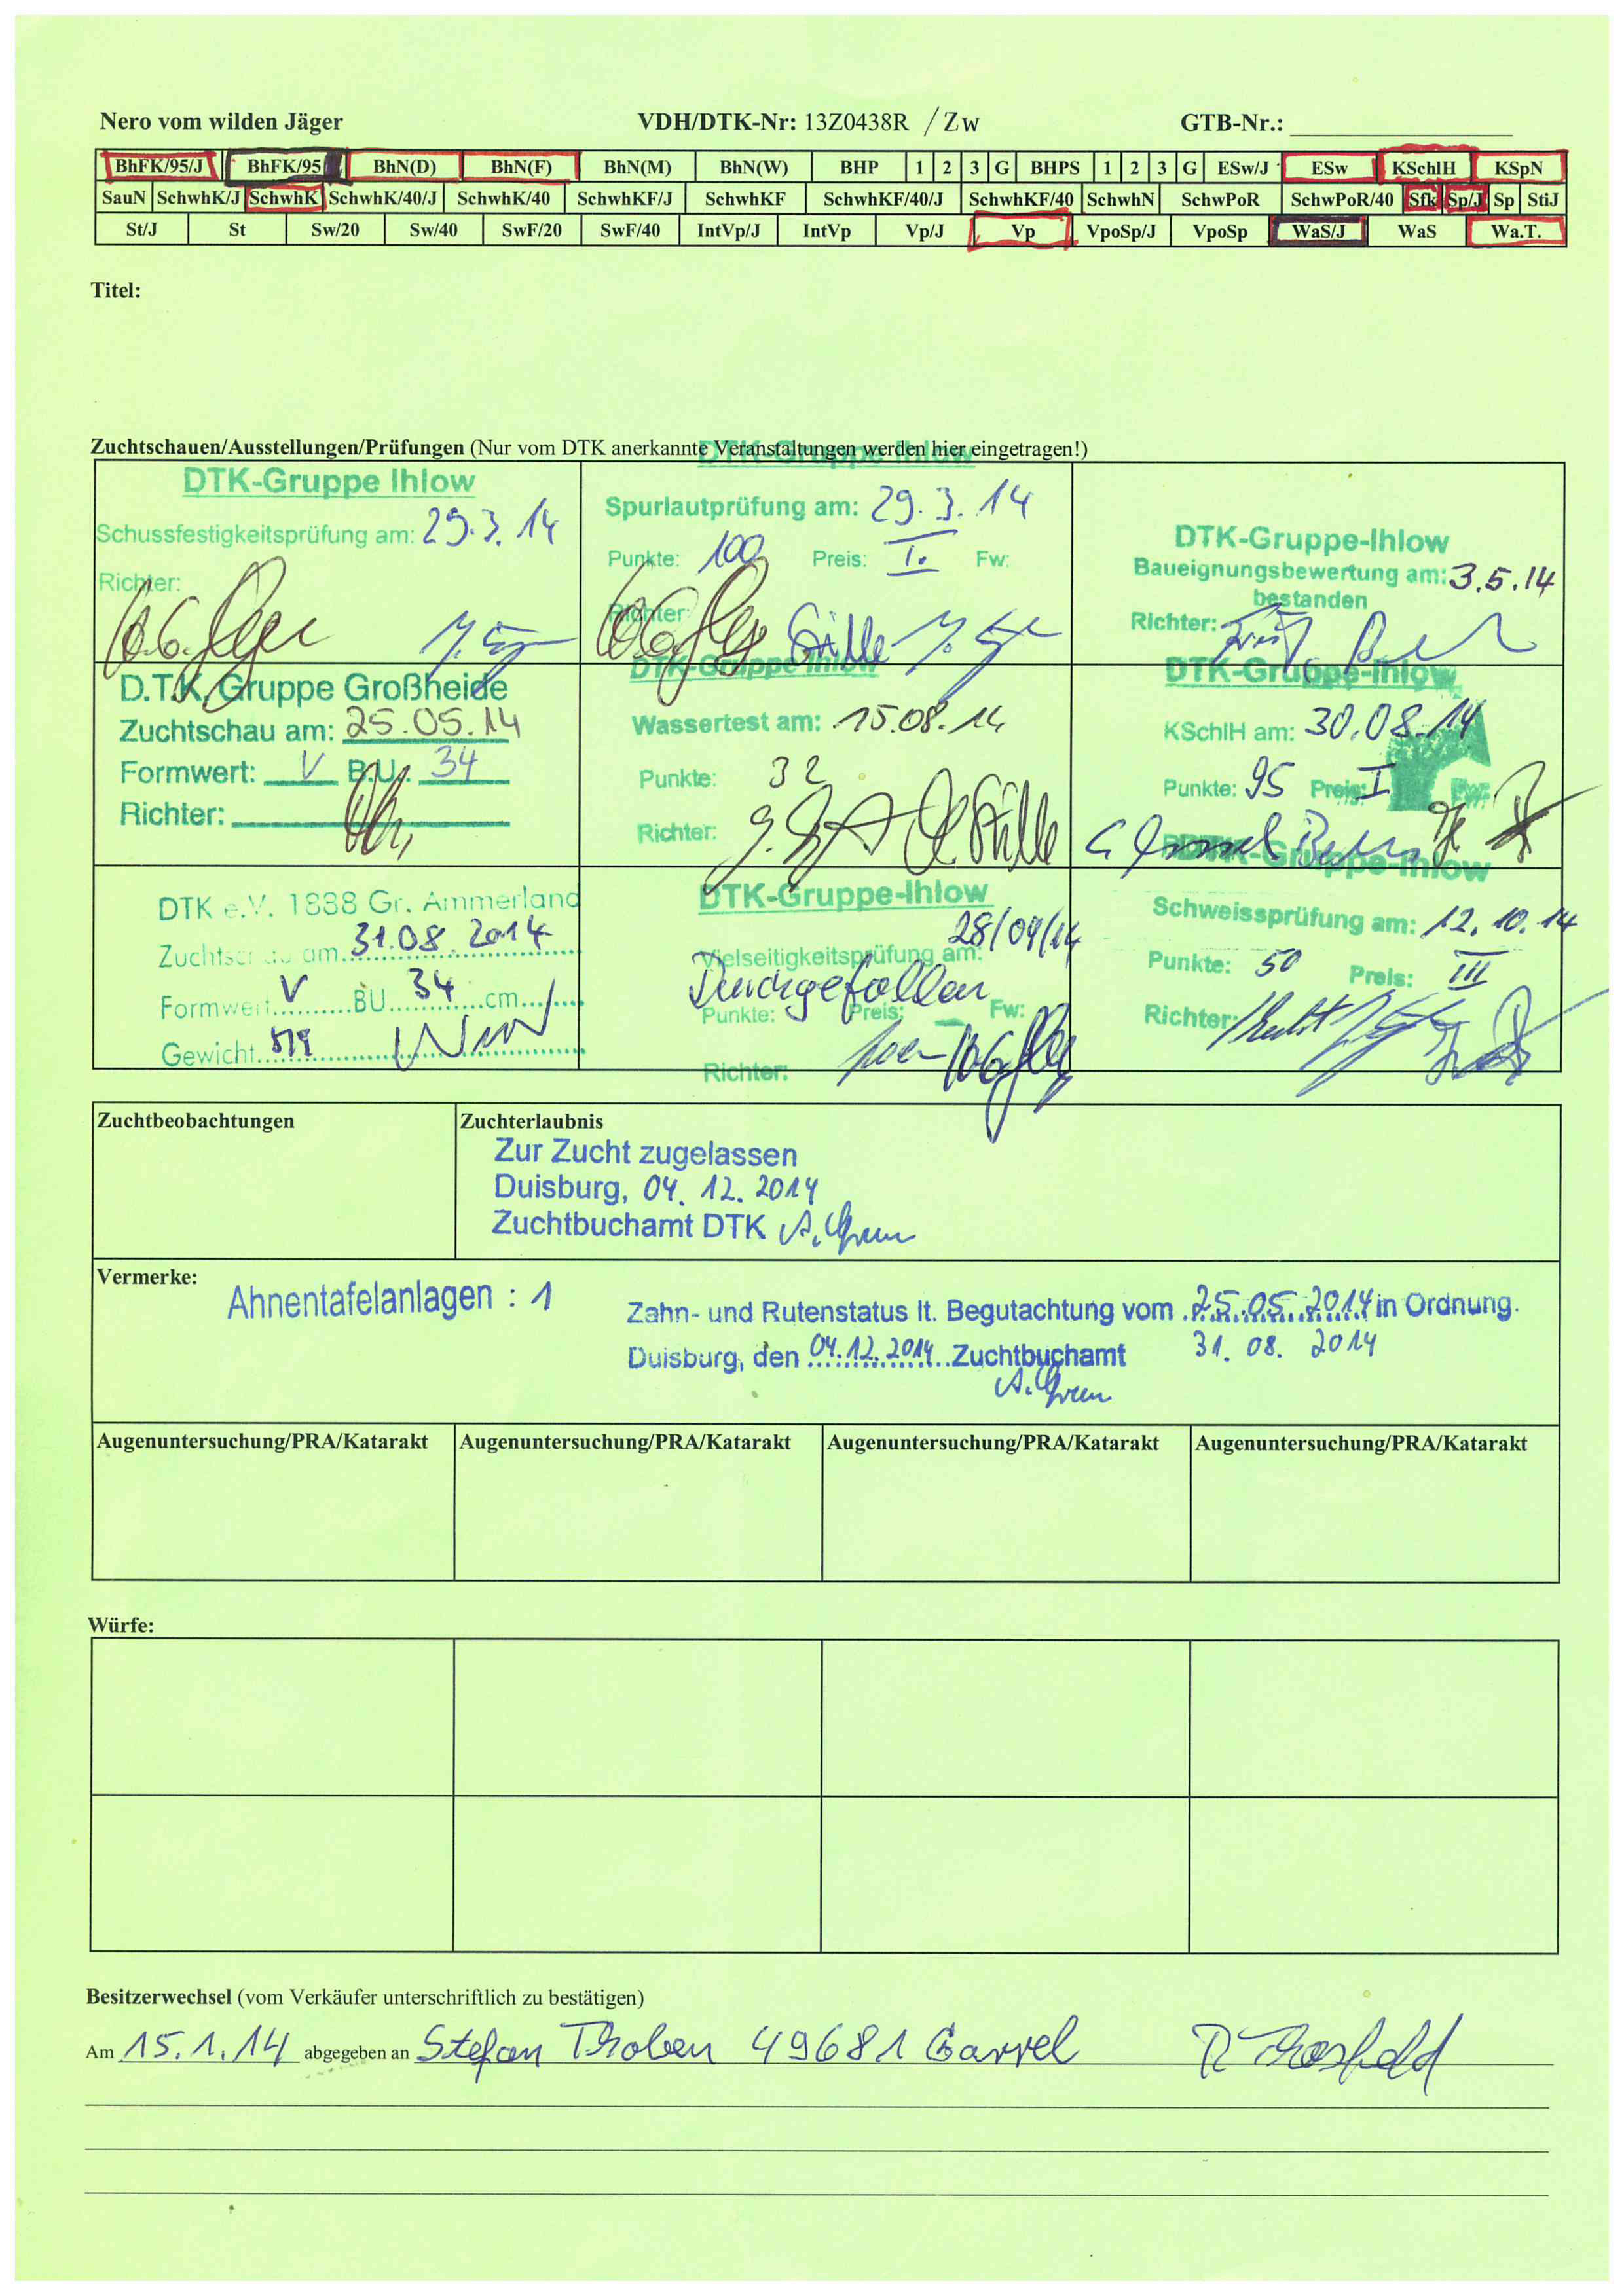 Nero vom wilden Jäger VDH/DTK-Nr: 13Z0438R / Zw GTB-Nr.:
BhFK/95/J BhFK/95 BhN(D) BhN(F) BhN(M) BhN(W) BHP 1 2 3 G BHPS 1 2 3 G ESw/J ESw KSchlH KSpN
SauN SchwhK/J SchwhK SchwhK/40/J SchwhK/40 SchwhKF/J SchwhKF SchwhKF/40/J SchwhKF/40 SchwhN SchwPoR SchwPoR/40 Sfk Sp/J Sp StiJ
St/J St Sw/20 Sw/40 SwF/20 SwF/40 IntVp/J IntVp Vp/J Vp VpoSp/J VpoSp WaS/J WaS Wa.T.
Titel:
Zuchtschauen/Ausstellungen/Prüfungen (Nur vom DTK anerkannte Veranstaltungen werden hier eingetragen!)
DTK-Gruppe Ihlow
Schussfestigkeitsprüfung am: 29.3.14
Richter:
DTK-Gruppe Ihlow
Spurlautprüfung am: 29.3.14
Punkte: 100 Preis: I. Fw:
Richter:
DTK-Gruppe-Ihlow
Baueignungsbewertung am: 3.5.14
bestanden
Richter:
D.T.K. Gruppe Großheide
Zuchtschau am: 25.05.14
Formwert: V B.U. 34
Richter:
DTK-Gruppe Ihlow
Wassertest am: 15.08.14
Punkte: 32
Richter:
DTK-Gruppe-Ihlow
KSchlH am: 30.08.14
Punkte: 95 Preis: I Fw:
DTK e.V. 1888 Gr. Ammerland
Zuchtschau am 31.08.2014
Formwert V BU 34 cm
Gewicht
DTK-Gruppe-Ihlow
Vielseitigkeitsprüfung am: 28/09/14
Durchgefallen
Punkte: Preis: – Fw:
Richter:
DTK-Gruppe-Ihlow
Schweissprüfung am: 12.10.14
Punkte: 50 Preis: III
Richter:
Zuchtbeobachtungen
Zuchterlaubnis
Zur Zucht zugelassen
Duisburg, 04.12.2014
Zuchtbuchamt DTK
Vermerke:
Ahnentafelanlagen : 1
Zahn- und Rutenstatus lt. Begutachtung vom 25.05.2014 in Ordnung.
31.08.2014
Duisburg, den 04.12.2014 Zuchtbuchamt
Augenuntersuchung/PRA/Katarakt Augenuntersuchung/PRA/Katarakt Augenuntersuchung/PRA/Katarakt Augenuntersuchung/PRA/Katarakt
Würfe:
Besitzerwechsel (vom Verkäufer unterschriftlich zu bestätigen)
Am 15.1.14 abgegeben an Stefan Thoben 49681 Garrel